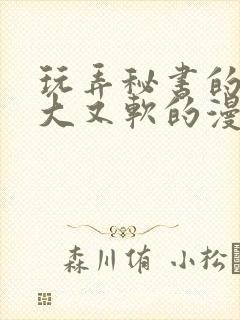 玩弄秘书的
大又軟的漫
森川侑 小松